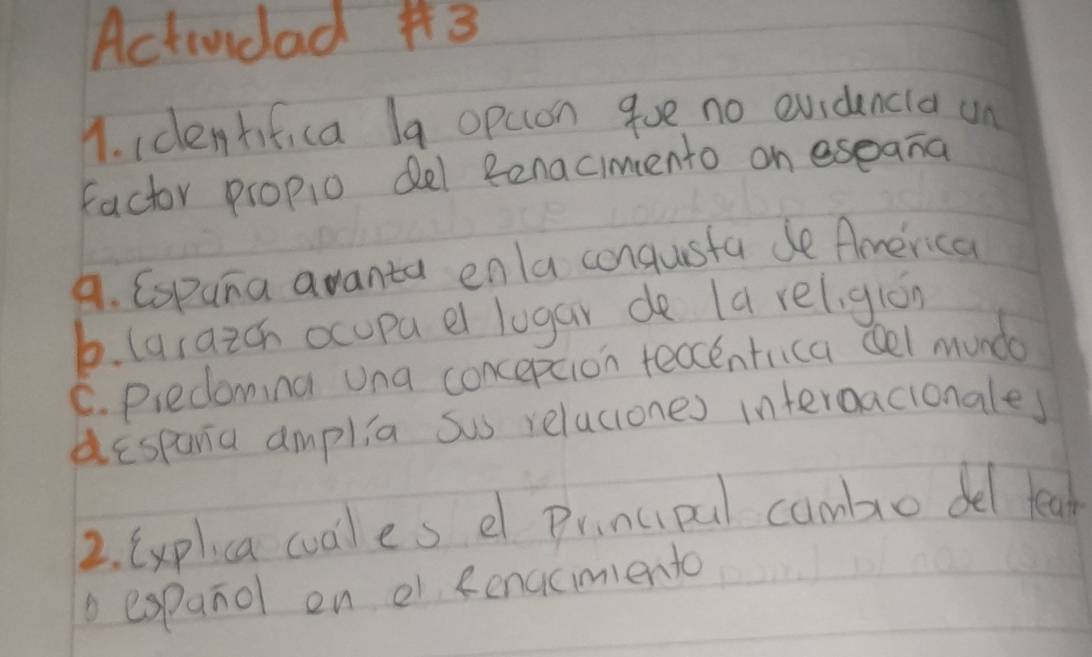 Actividad #3
1. identifica la opcion que no evidencia un
factor propio del Renacimiento en españa
a. España avanza en la conquista de América
b. la razon ocupa el lugar de la religión
c. Predomina una concepción teocéntrica del mundo
d España amplía sus relaciones internacionales
2. Explica cuál es el Principal cambio del teatr
o español en el Renacimiento